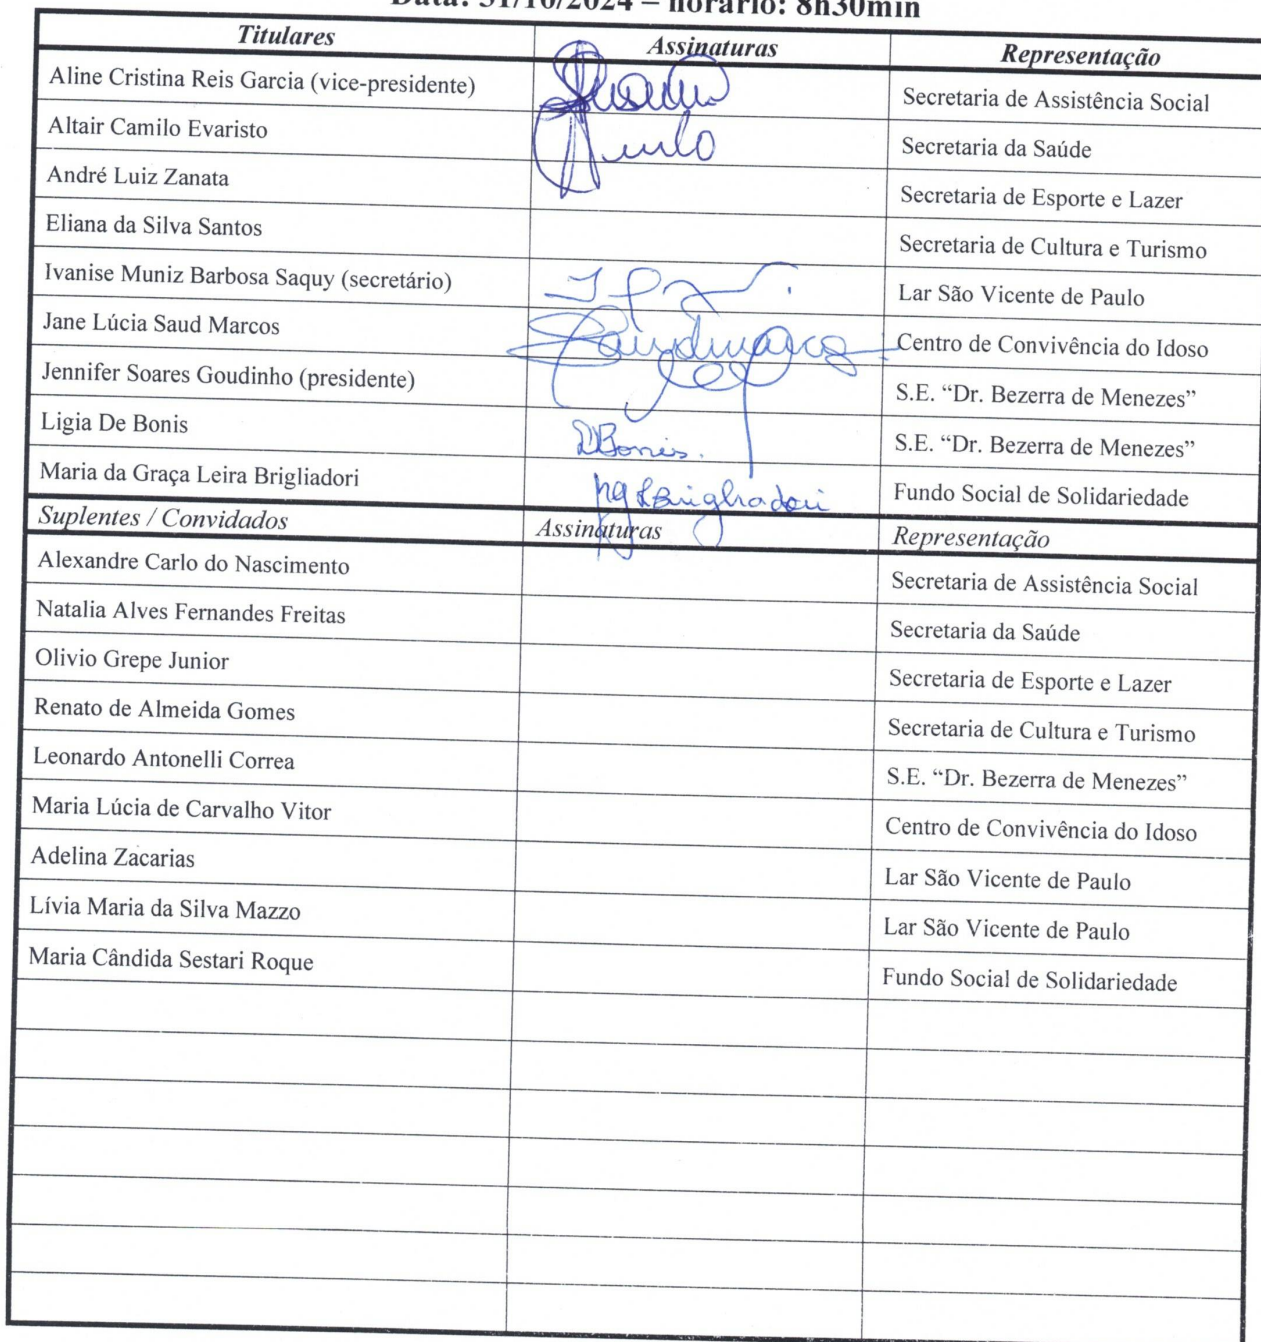 Data: 31/10/2024 – horário: 8h30min
Titulares Assinaturas Representação
Aline Cristina Reis Garcia (vice-presidente) Secretaria de Assistência Social
Altair Camilo Evaristo Secretaria da Saúde
André Luiz Zanata Secretaria de Esporte e Lazer
Eliana da Silva Santos Secretaria de Cultura e Turismo
Ivanise Muniz Barbosa Saquy (secretário) Lar São Vicente de Paulo
Jane Lúcia Saud Marcos Saudmarcos Centro de Convivência do Idoso
Jennifer Soares Goudinho (presidente) S.E. “Dr. Bezerra de Menezes”
Ligia De Bonis DBonis. S.E. “Dr. Bezerra de Menezes”
Maria da Graça Leira Brigliadori mgLBrigliadori Fundo Social de Solidariedade
Suplentes / Convidados Assinaturas Representação
Alexandre Carlo do Nascimento Secretaria de Assistência Social
Natalia Alves Fernandes Freitas Secretaria da Saúde
Olivio Grepe Junior Secretaria de Esporte e Lazer
Renato de Almeida Gomes Secretaria de Cultura e Turismo
Leonardo Antonelli Correa S.E. “Dr. Bezerra de Menezes”
Maria Lúcia de Carvalho Vitor Centro de Convivência do Idoso
Adelina Zacarias Lar São Vicente de Paulo
Lívia Maria da Silva Mazzo Lar São Vicente de Paulo
Maria Cândida Sestari Roque Fundo Social de Solidariedade